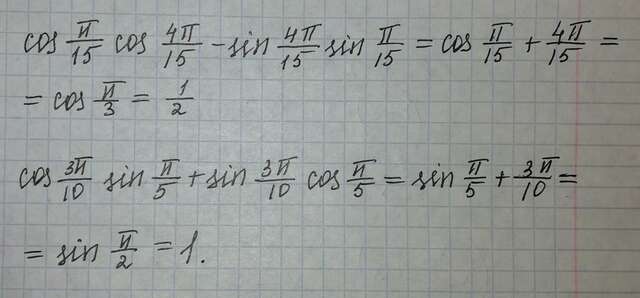 cos π/15 cos 4π/15 - sin 4π/15 sin π/15 = cos π/15 + 4π/15 =
= cos π/3 = 1/2
cos 3π/10 sin π/5 + sin 3π/10 cos π/5 = sin π/5 + 3π/10 =
= sin π/2 = 1.